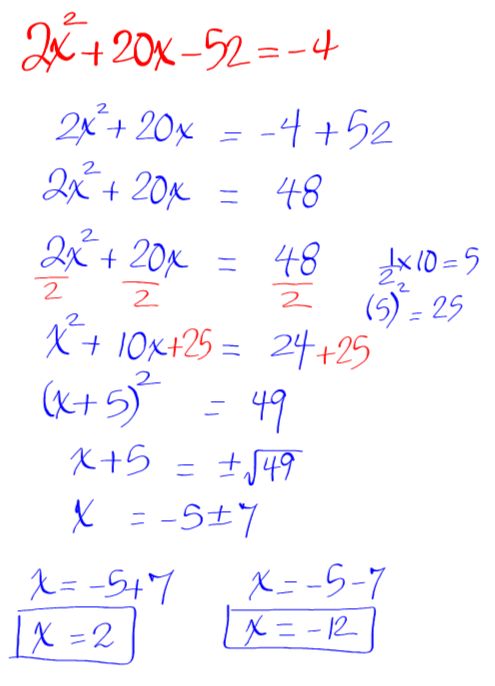 2x² + 20x - 52 = -4
2x² + 20x = -4 + 52
2x² + 20x = 48
2x²/2 + 20x/2 = 48/2
1/2 x 10 = 5
(5)² = 25
x² + 10x + 25 = 24 + 25
(x + 5)² = 49
x + 5 = ±√49
x = -5 ± 7
x = -5 + 7
x = 2
x = -5 - 7
x = -12